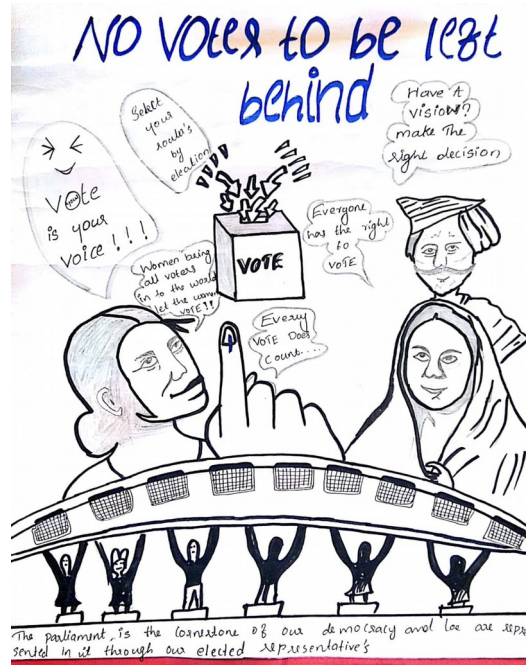 NO VOteR tO be left
behind
Select
your
by
election
Have A
vision?
make The
right decision
Vote
your
is your
voice!!!
Everyone
has the right
to
VOTE
VOTE
Women being
all voters
in to the world
let the women
VOTE!!
Every
VOTE Does
Count....
The parliament, is the cornerstone of our democracy and we are repre
sented in it through our elected representative's